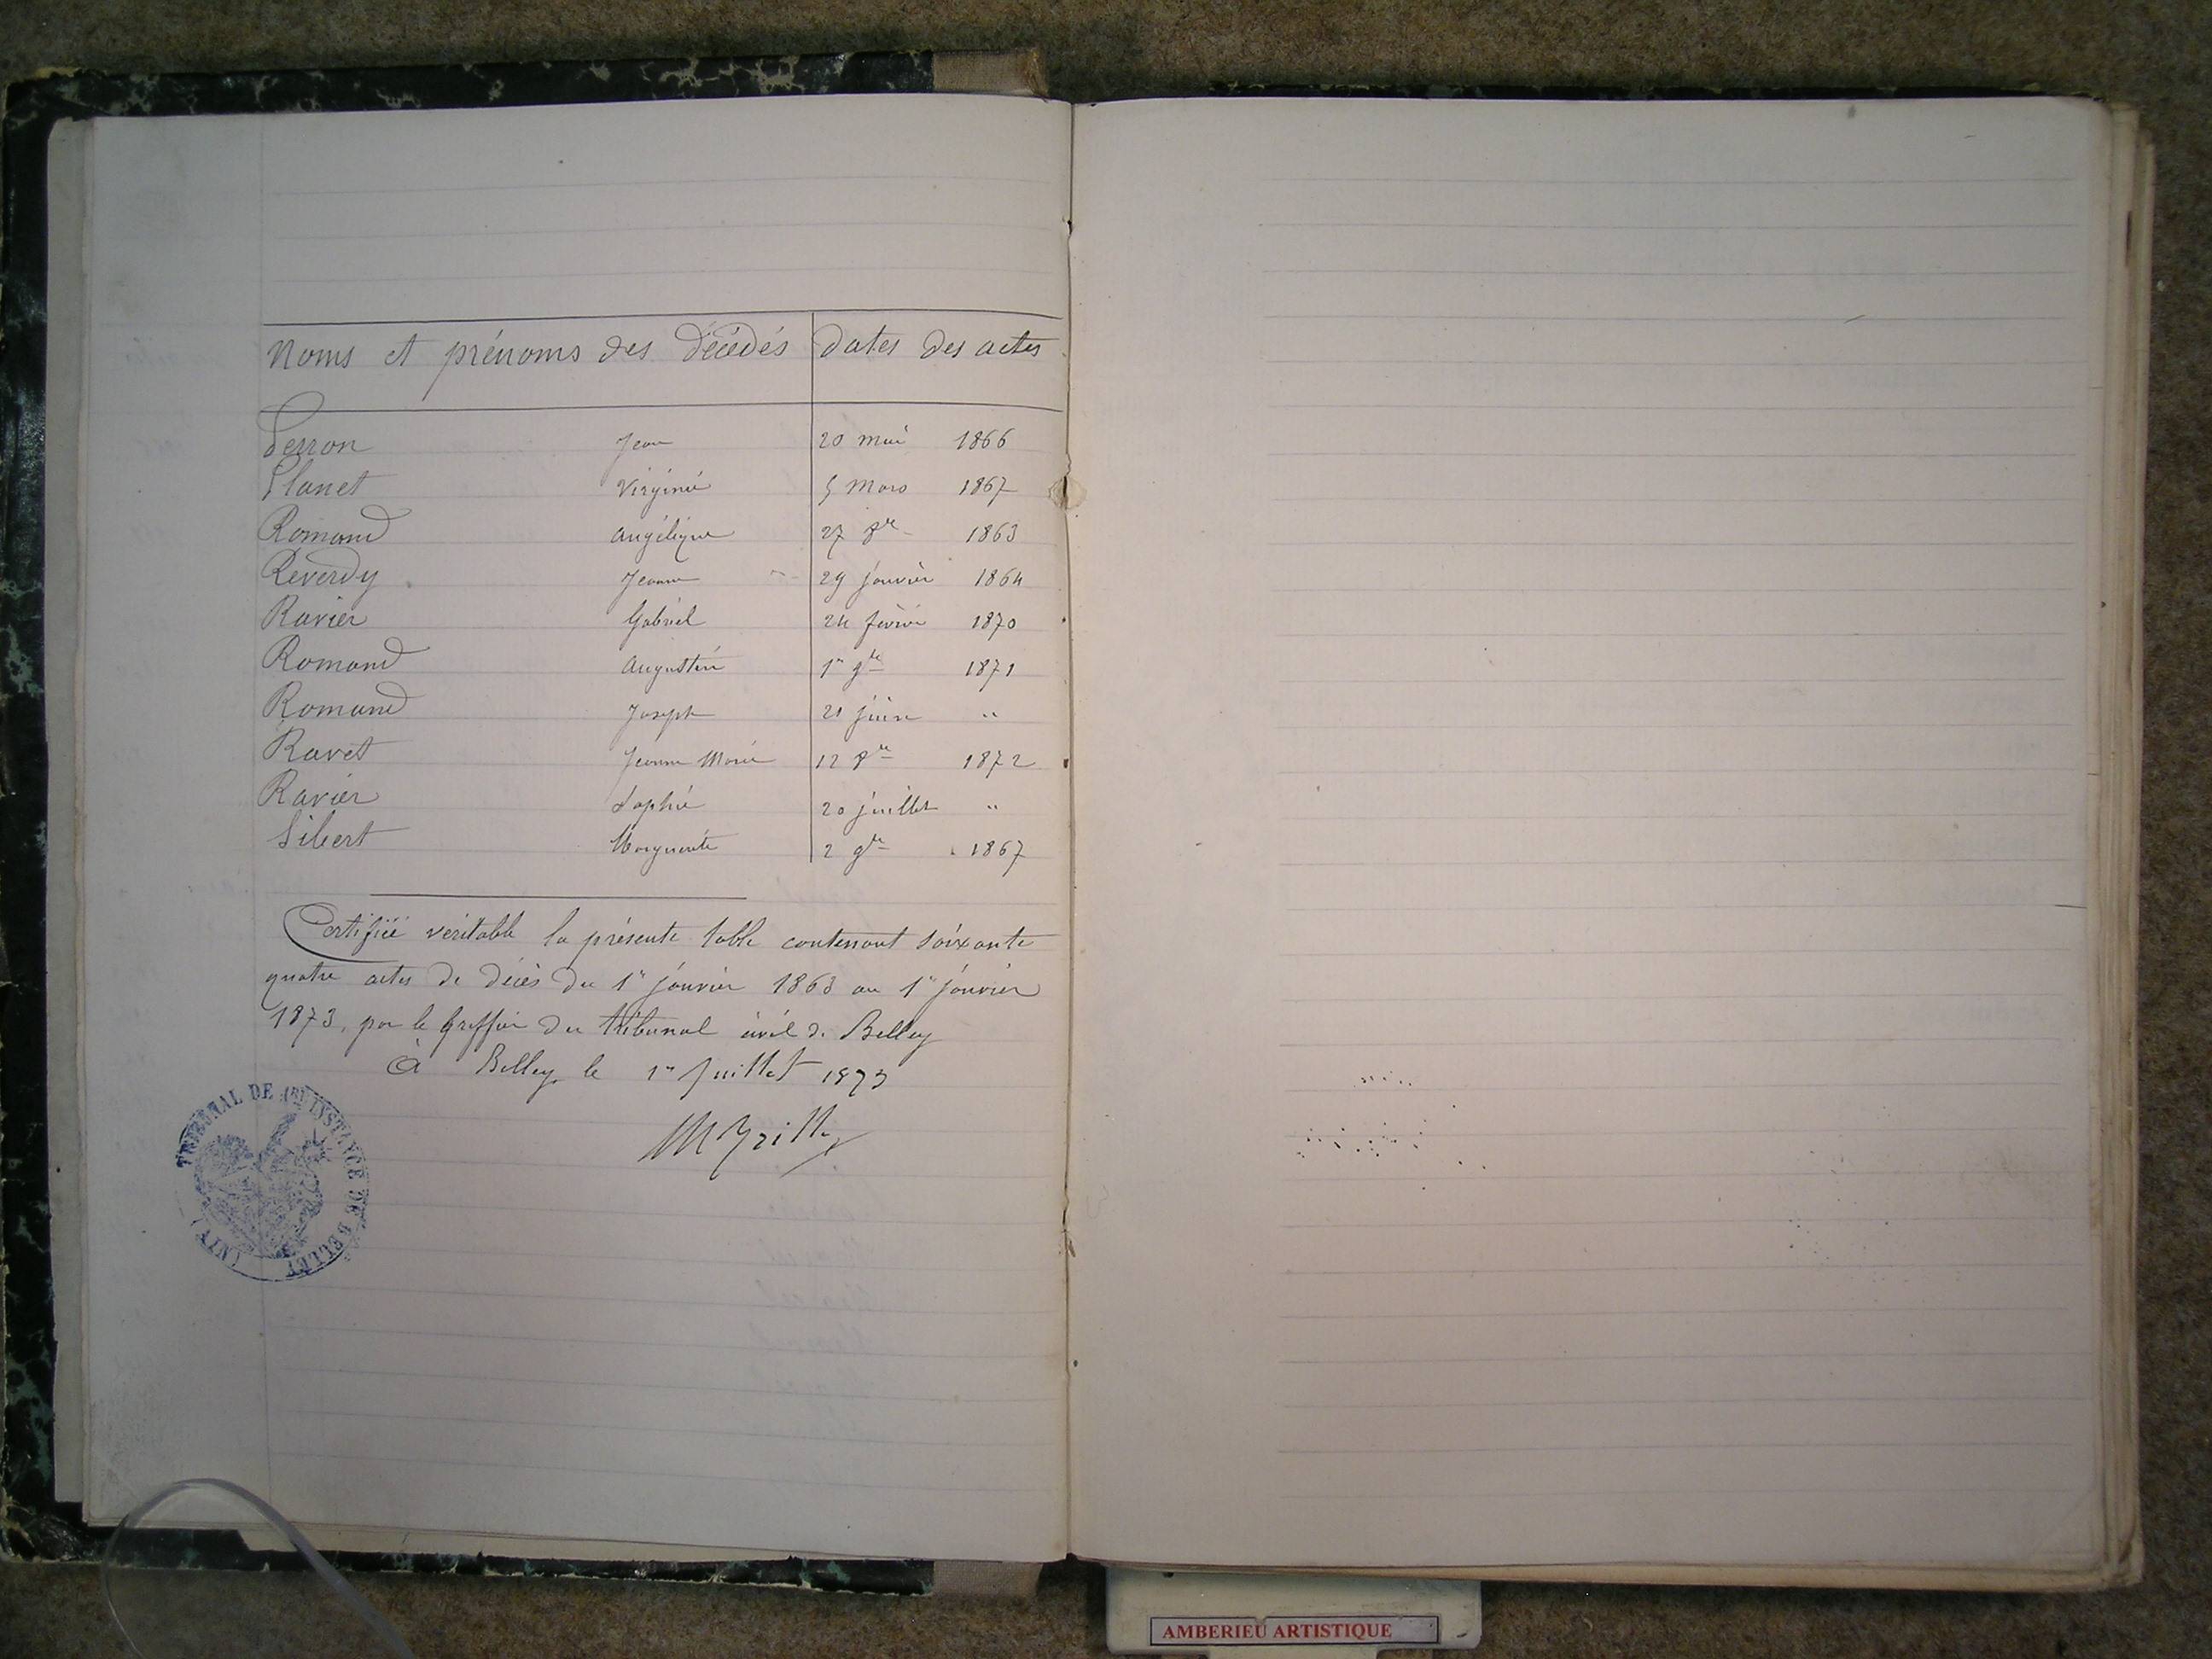 Noms et prénoms des décédés Dates des actes
Perron Jean 20 mai 1866
Planet Virginie 5 Mars 1867
Romand Angélique 27 8re 1863
Reverdy Jeanne 29 janvier 1864
Ravier Gabriel 24 février 1870
Romand Augustin 1er 9re 1871
Romand Joseph 21 juin "
Ravet Jeanne Marie 12 8re 1872
Ravier Sophie 20 juillet "
Sibert Marguerite 2 9re 1867
Certifiée véritable la présente table contenant soixante
quatre actes de décès du 1er janvier 1863 au 1er janvier
1873, par le Greffier du tribunal civil de Belley
à Belley le 1er Juillet 1873
TRIBUNAL DE 1RE INSTANCE DE BELLEY (AIN)
AMBERIEU ARTISTIQUE